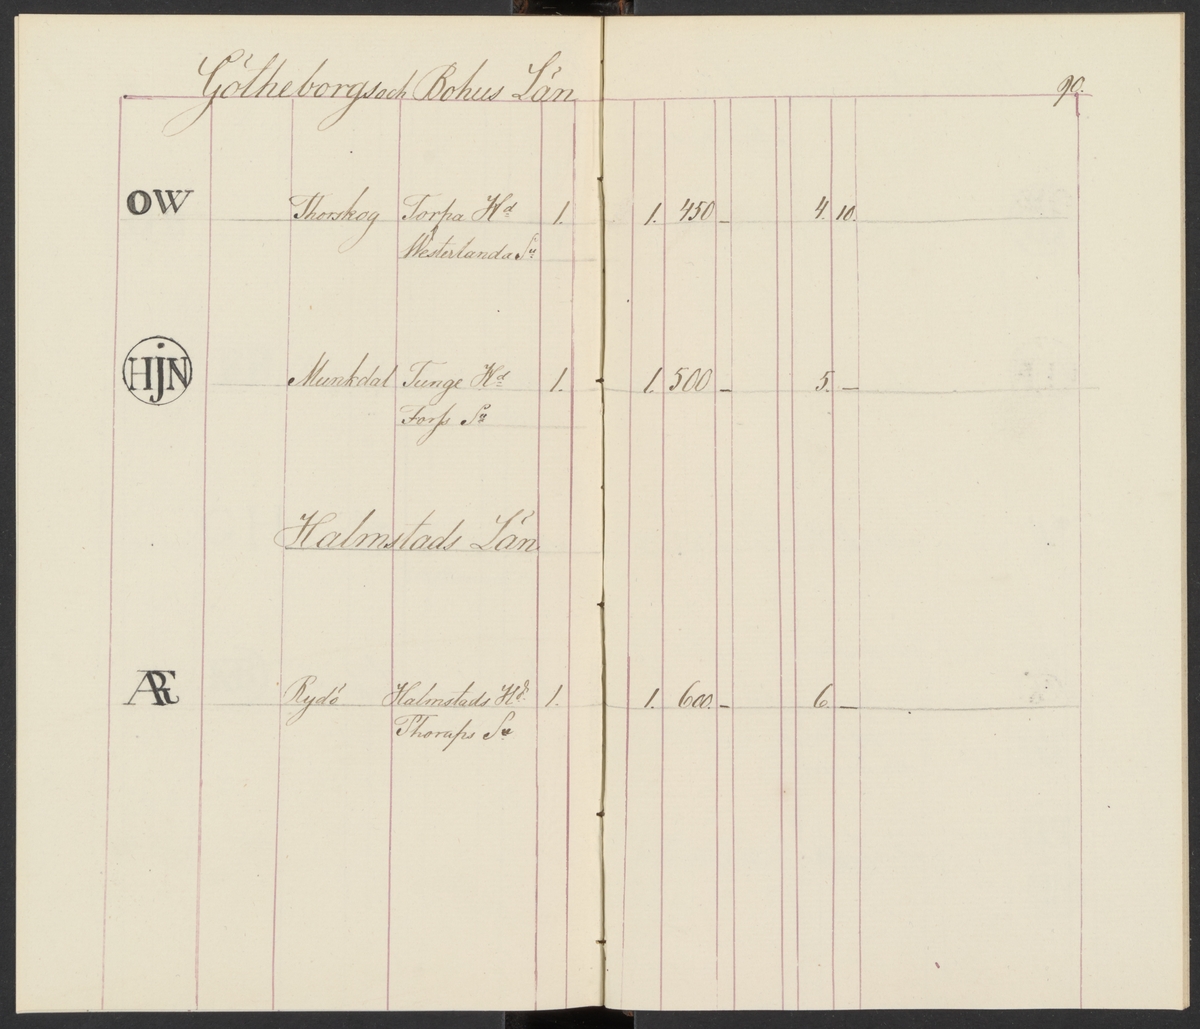 Götheborgs och Bohus Län 90.
OW Thorskog Torpa Hd 1. 1. 450 – 4. 10.
Westerlanda Sn
HJN Munkdal Tunge Hd 1. 1. 500 – 5. –
Forss Sn
Halmstads Län
Rydö Halmstads Hd 1. 1. 600. – 6. –
Thorups Sn